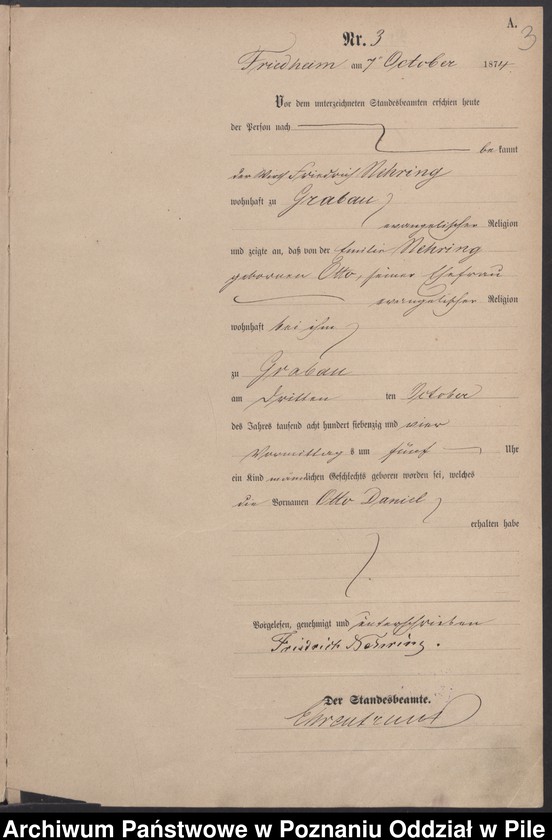 A.
3
Nr. 3
Friedheim am 7ten October 1874.
Vor dem unterzeichneten Standesbeamten erschien heute
der Person nach
be kannt
der Friedrich Nehring
wohnhaft zu Grabau
evangelischer Religion
und zeigte an, daß von der Emilie Nehring
geborenen Otto, seiner Ehefrau
evangelischer Religion
wohnhaft bei ihm
zu Grabau
am dritten ten October
des Jahres tausend acht hundert siebenzig und vier
Vormittag s um fünf Uhr
ein Kind männlichen Geschlechts geboren worden sei, welches
die Vornamen Otto Daniel
erhalten habe
Vorgelesen, genehmigt und unterschrieben
Friedrich Nehring.
Der Standesbeamte.
Ehrentraut
Archiwum Państwowe w Poznaniu Oddział w Pile